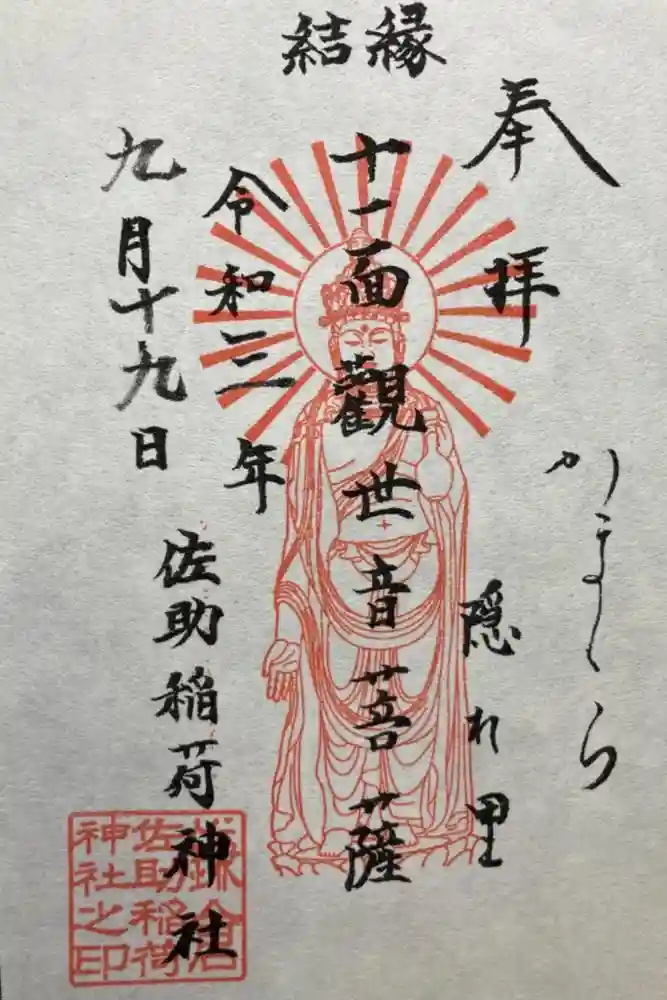 縁結
奉拝
かまくら
隠れ里
十一面觀世音菩薩
令和三年
九月十九日
佐助稲荷神社
鎌倉
佐助稲荷
神社之印